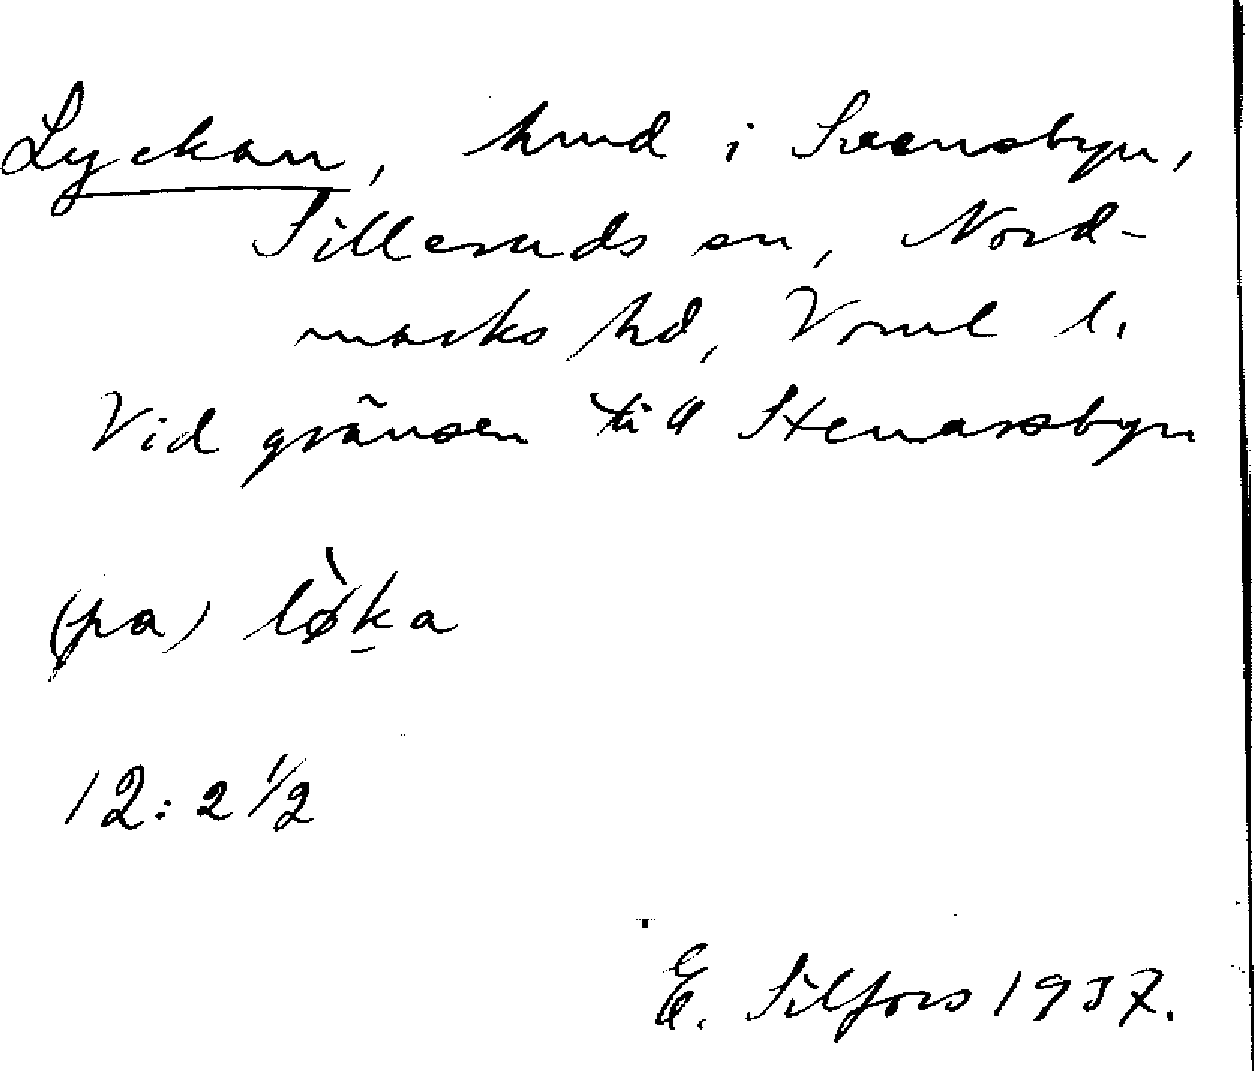 Lyckan, hmd i Svensbyn,
Silleruds sn, Nord-
marks hd, Vrml l.
Vid gränsen till Stenarsbyn
(pa) lø̀ka
12: 2 1/2
E. Silfors 1937.